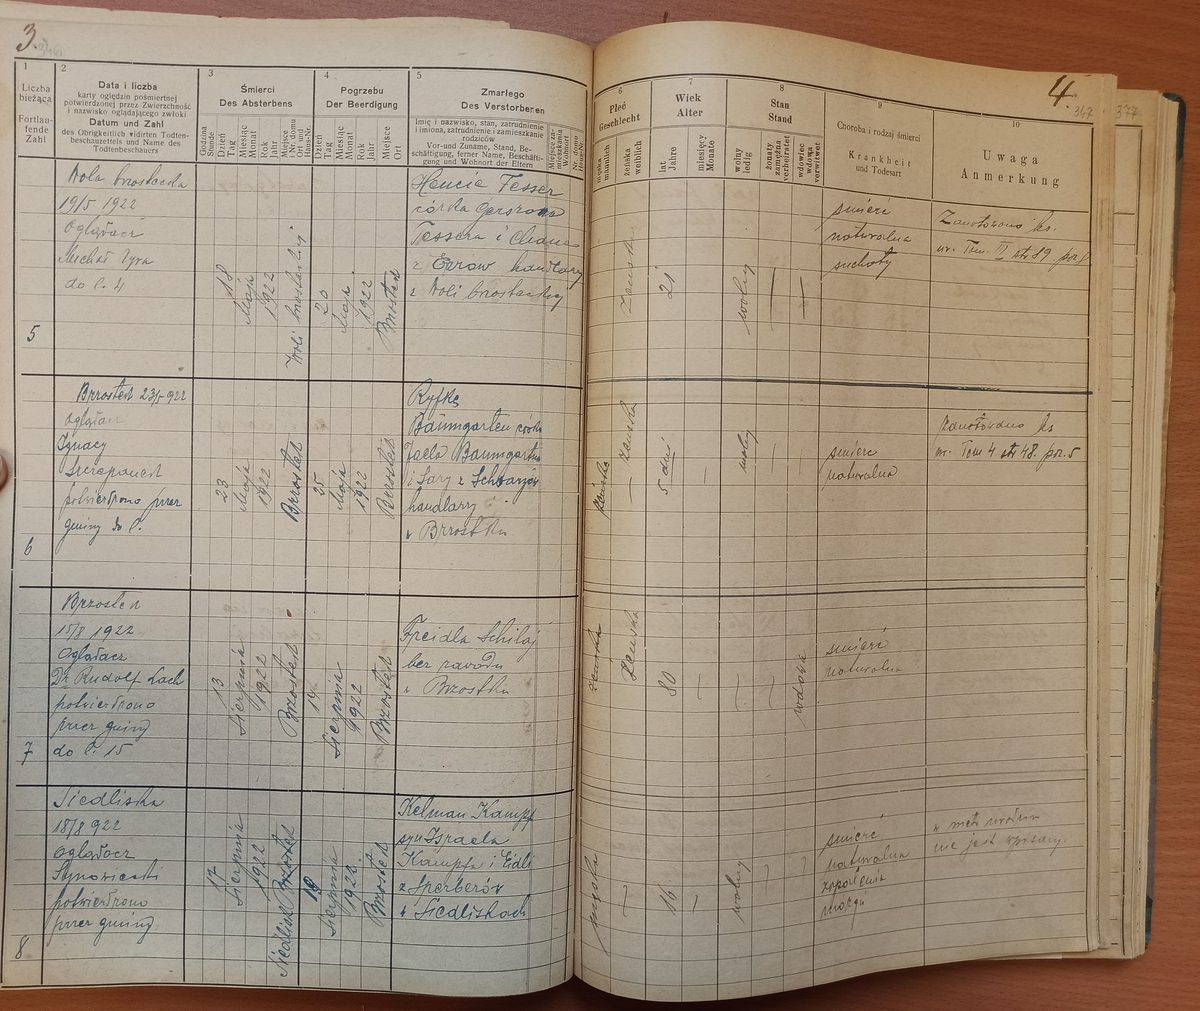 3.
1
Liczba
bieżąca
Fortlau-
fende
Zahl
2
Data i liczba
karty oględzin pośmiertnej
potwierdzonej przez Zwierzchność
i nazwisko oglądającego zwłoki
Datum und Zahl
des Obrigkeitlich vidirten Todten-
beschauzettels und Name des
Todtenbeschauers
3
Śmierci
Des Absterbens
Godzina
Stunde
Dzień
Tag
Miesiąc
Monat
Rok
Jahr
Miejsce
i Nr. domu
Ort und
Haus-Nr.
4
Pogrzebu
Der Beerdigung
Dzień
Tag
Miesiąc
Monat
Rok
Jahr
Miejsce
Ort
5
Zmarłego
Des Verstorbenen
Imię i nazwisko, stan, zatrudnienie
i imiona, zatrudnienie i zamieszkanie
rodziców
Vor-und Zuname, Stand, Be-
schäftigung, ferner Name, Beschäfti-
gung und Wohnort der Eltern
Miejsce za-
mieszkania
Wohnort
Nr. domu
Haus-Nr.
5
Wola brzostecka
19/5 1922
Oglądacz
Michał
do l. 4
18
Maja
1922
Woli brzosteckiej
20
Maja
1922
Brzostek
Hencie Tesser
córka Gerszona
Tessera i Chana
z handlarz
z Woli brzosteckiej
6
Brzostek 23/5 922
oglądacz
Ignacy
Szczepanek
potwierdzono przez
gminy do l.
23
Maja
1922
Brzostek
25
Maja
1922
Brzostek
Ryfka
Baumgarten córka
Baumgarten
i Sary z
handlarz
w Brzostku
7
Brzostek
15/8 1922
Oglądacz
Dr Rudolf Lach
potwierdzono
przez gminy
do l. 15
13
Sierpnia
1922
Brzostek
Sierpnia
1922
Brzostek
Freidla
bez zawodu
w Brzostku
8
Siedliska
18/8 922
Oglądacz
potwierdzono
przez gminy
17
Sierpnia
1922
Brzostek
Sierpnia
1922
Brzostek
Kelman Kampf
syn Izraela
Kampfa i Eidli
z Sperberów
w Siedliskach
4
347
377
6
Płeć
Geschlecht
męska
männlich
żeńska
weiblich
7
Wiek
Alter
lat
Jahre
miesięcy
Monate
8
Stan
Stand
wolny
ledig
żonaty
zamężna
verheiratet
wdowiec
wdowa
verwitwet
9
Choroba i rodzaj śmierci
Krankheit
und Todesart
10
Uwaga
Anmerkung
żeńska
21
wolny
śmierć
naturalna
suchoty
Zanotowano ks.
ur. Tom. II str 89 poz
żeńska
żeńska
5 dni
wolny
śmierć
naturalna
zanotowano ks
ur. Tom 4 str 48. poz. 5
żeńska
żeńska
80
wdowa
śmierć
naturalna
męska
16
wolny
śmierć
naturalna
zapalenia
mózgu
w metr urodzin
nie jest wpisany.